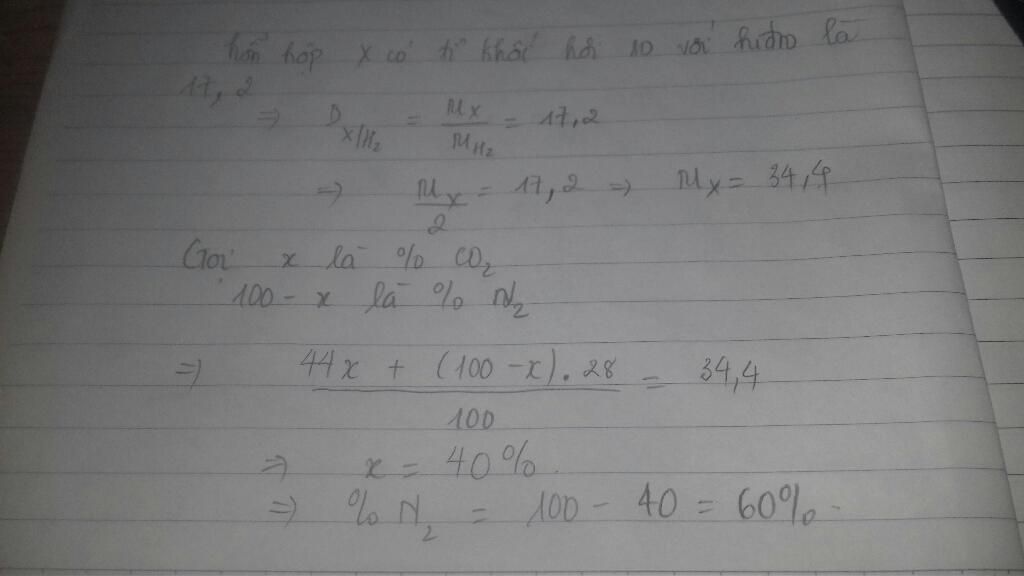 hỗn hợp X có tỉ khối hơi so với hiđro là
17,2
⇒ D X/H₂ = M_X / M_H₂ = 17,2
⇒ M_X / 2 = 17,2 ⇒ M_X = 34,4
Gọi x là % CO₂
100 - x là % N₂
⇒ 44x + (100 - x).28 / 100 = 34,4
⇒ x = 40%
⇒ % N₂ = 100 - 40 = 60%